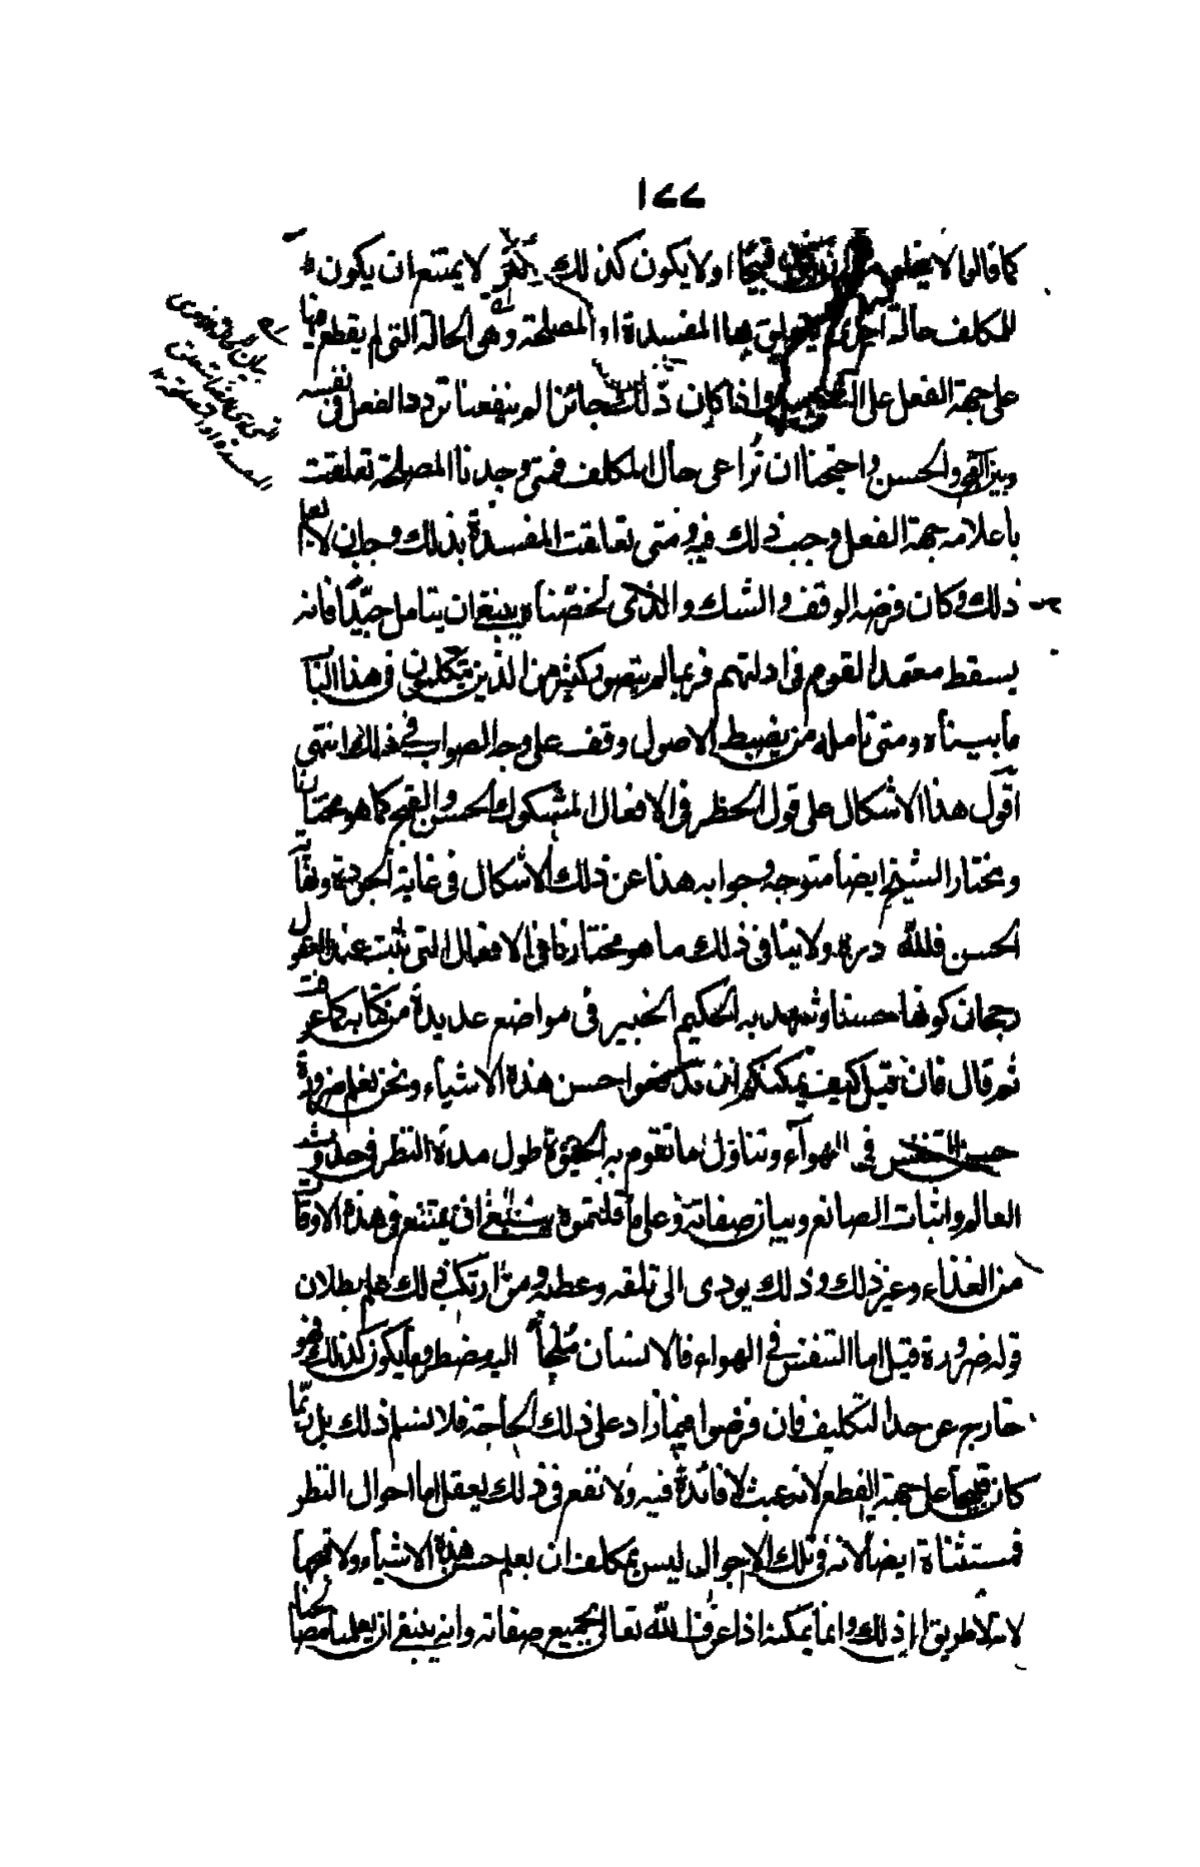 ١٧٧
كما قالوا لا يخلو من ان يكون قبيحا او لا يكون كذلك لا يمتنع ان يكون
للمكلف حالة اخرى يتعلق بها المفسدة او المصلحة وهى الحالة التى لم يقطع فيها
على جهة الفعل على التفصيل واذا كان ذلك جائزا لم ينفعنا تردد الفعل فى نفسه
وبين القبح والحسن واحتجنا ان تراعى حال المكلف فمتى وجدنا المصلحة تعلقت
باعلامه جهة الفعل وجب ذلك فيه ومتى تعلقت المفسدة بذلك وجب ان لا يعلم
ذلك وكان فرضه الوقف والشك والذى لخصناه ينبغى ان يتامل جيّدا فانه
يسقط معتمد القوم فى ادلتهم فربما لم يتصور كثير من الذين يتكلمون فى هذا الباب
ما بيناه ومتى تامله من يضبط الاصول وقف على وجه الصواب فى ذلك انتهى
اقول هذا الاشكال على قول الحظر فى الافعال المشكوك الحسن والقبح كما هو مختارنا
ومختار الشيخ ايضا متوجه وجوابه هذا عن ذلك الاشكال فى غاية الجودة ونهاية
الحسن فلله دره ولا ينافى ذلك ما هو مختارنا فى الافعال التى ثبت عند العقول
رجحان كونها حسنا وشهد به الحكيم الخبير فى مواضع عديدة من كتابه كما عرفت
ثم قال فان قيل كيف يمكنكم ان تدفعوا حسن هذه الاشياء ونحن نعلم ضرورة
حسن التنفس فى الهواء وتناول ما تقوم به الحيوة طول مدة النظر فى حدوث
العالم واثبات الصانع وبيان صفاته وعلى ما قلتموه ينبغى ان يمتنع فى هذه الاوقات
من الغذاء وغير ذلك وذلك يودى الى تلفه وعطبه ومن ارتكب ذلك علم بطلان
قوله ضرورة قيل اما التنفس فى الهواء فالانسان مُلْجَأ اليه مضطر وما يكون كذلك فهو
خارج عن حد التكليف فان فرضوا فيما زاد على ذلك الحاجة فلا نسلم ذلك بل ربّما
كان قبيحا على جهة القطع لانه عبث لا فائدة فيه ولا نفع فى ذلك يعقل اما احوال النظر
فمستثناة ايضا لانه فى تلك الاحوال ليس بمكلف ان يعلم حسن هذه الاشياء ولا قبحها
لانه لا طريق له الى ذلك وانما يمكنه اذا عرف الله تعالى بجميع صفاته وانه ينبغى ان يعلمنا مصالحنا